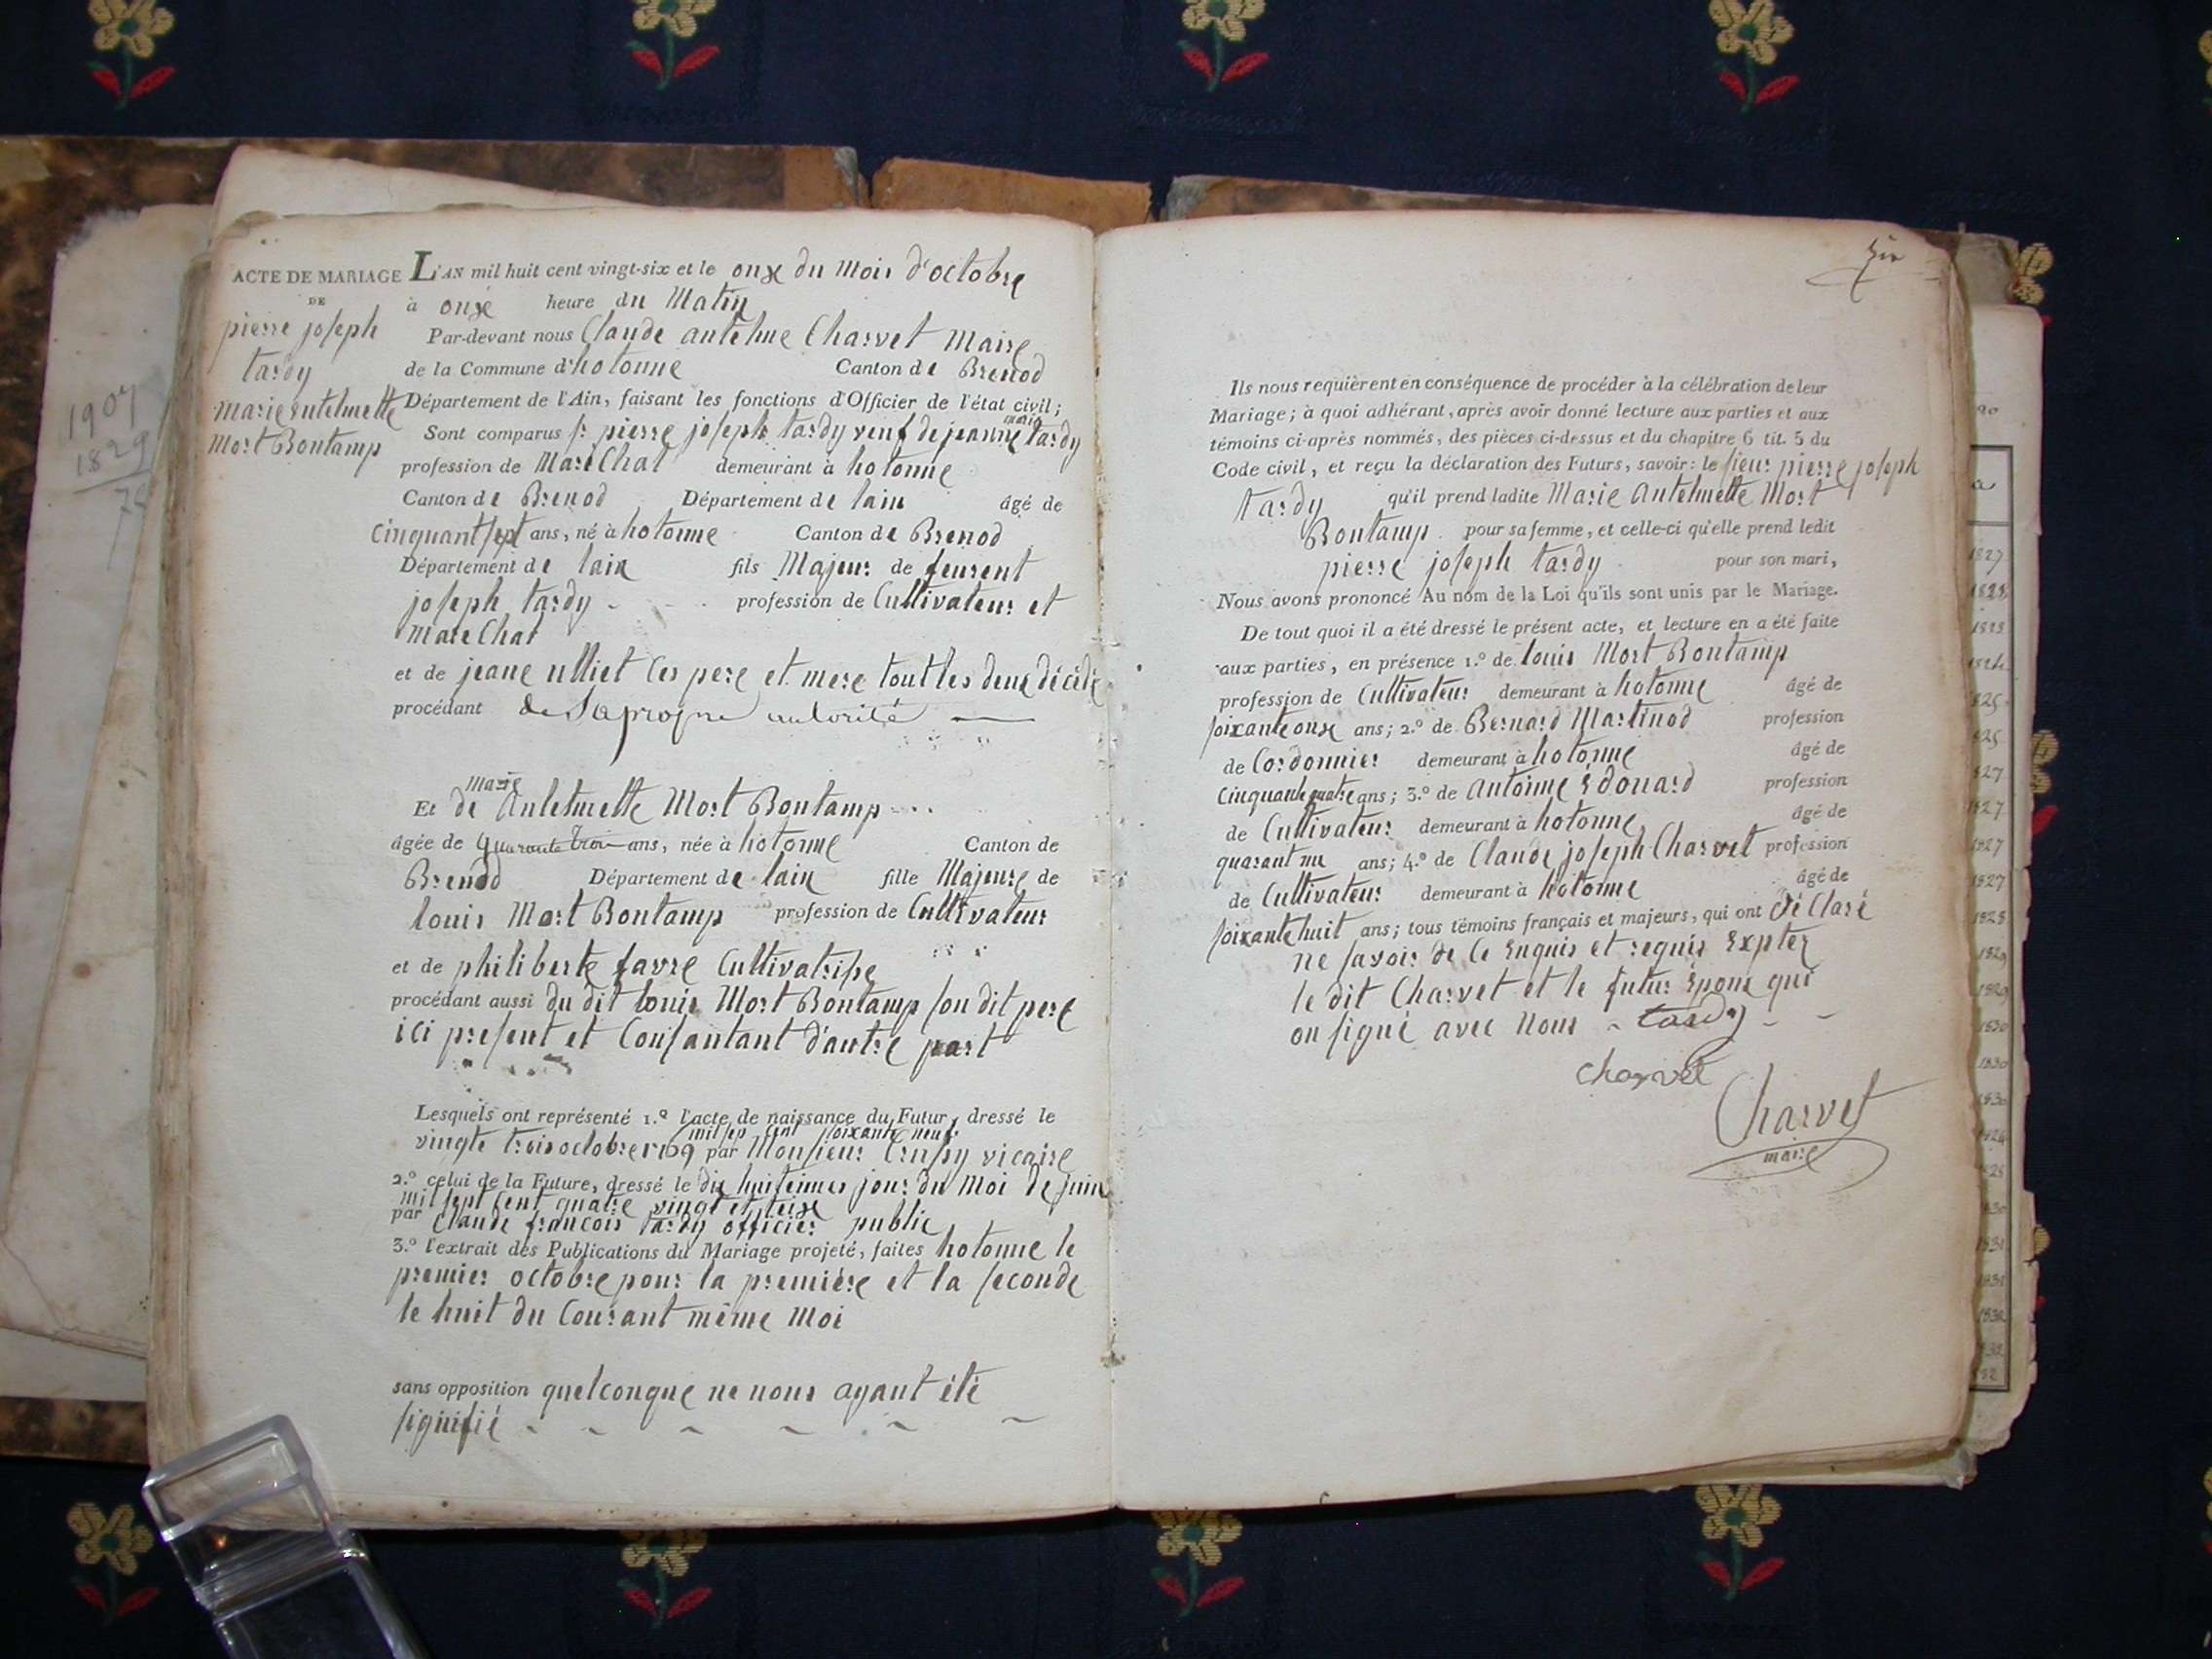 1907
1829
ACTE DE MARIAGE
DE
pierre joseph
tardy
marie antelmette
Mort Bontamp
L'AN mil huit cent vingt-six et le onze du Mois d'octobre
à onze heure du Matin
Par-devant nous Claude antelme Charvet Maire
de la Commune d'hotonne Canton de Brenod
Département de l'Ain, faisant les fonctions d'Officier de l'état civil;
Sont comparus sr pierre joseph tardy veuf de jeanne marie tardy
profession de MareChal demeurant à hotonne
Canton de Brenod Département de lain âgé de
cinquant sept ans, né à hotonne Canton de Brenod
Département de lain fils Majeur de feurent
joseph tardy profession de Cultivateur et
MareChal
et de jeane ulliet Ces pere et mere tout les deux décédé
procédant de Sa propre autorité
Et de marie Antelmette Mort Bontamp
âgée de quarante trois ans, née à hotonne Canton de
Brenod Département de lain fille Majeure de
louis Mort Bontamp profession de Cultivateur
et de philiberte favre Cultivatrise
procédant aussi du dit louis Mort Bontamp son dit pere
ici present et Consantant d'autre part
Lesquels ont représenté 1.º l'acte de naissance du Futur, dressé le
mil sep cent soixante neuf
vingte trois octobre 1769 par Monsieur Crussy vicaire
2.º celui de la Future, dressé le dix huitiemes jour du Moi de juin
mil sept cent quatre vingt et treize
par Claude francois tardy officier public
3.º l'extrait des Publications du Mariage projeté, faites hotonne le
premier octobre pour la première et la seconde
le huit du Courant même Moi
sans opposition quelconque ne nous ayant été
signifié
Ils nous requièrent en conséquence de procéder à la célébration de leur
Mariage; à quoi adhérant, après avoir donné lecture aux parties et aux
témoins ci-après nommés, des pièces ci-dessus et du chapitre 6 tit. 5 du
Code civil, et reçu la déclaration des Futurs, savoir: le sieur pierre joseph
tardy qu'il prend ladite Marie Antelmette Mort
Bontamp pour sa femme, et celle-ci qu'elle prend ledit
pierre joseph tardy pour son mari,
Nous avons prononcé Au nom de la Loi qu'ils sont unis par le Mariage.
De tout quoi il a été dressé le présent acte, et lecture en a été faite
aux parties, en présence 1.º de louis Mort Bontamp
profession de Cultivateur demeurant à hotonne âgé de
soixante onze ans; 2.º de Bernard Martinod profession
de Cordonnier demeurant à hotonne âgé de
cinquante quatre ans; 3.º de Antoinne Edouard profession
de Cultivateur demeurant à hotonne âgé de
quarant un ans; 4.º de Claude joseph Charvet profession
de Cultivateur demeurant à hotonne âgé de
soixante huit ans; tous témoins français et majeurs, qui ont dé Claré
ne savoir de Ce Enquis et requis Expter
le dit Charvet et le futur Epoux qui
on signé avec Nous tardy
Charvet
Charvet
maire
1827
1828
1827
1827
1827
1827
1828
1829
1829
1830
1830